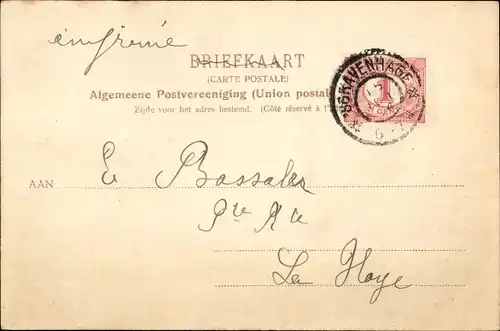 imprimé
BRIEFKAART
(CARTE POSTALE)
Algemeene Postvereeniging (Union postal
Zijde voor het adres bestemd. (Côté réservé à l'
'SGRAVENHAGE
1
CENT
6
AAN
E Bassaler
Pte Rte
La Haye